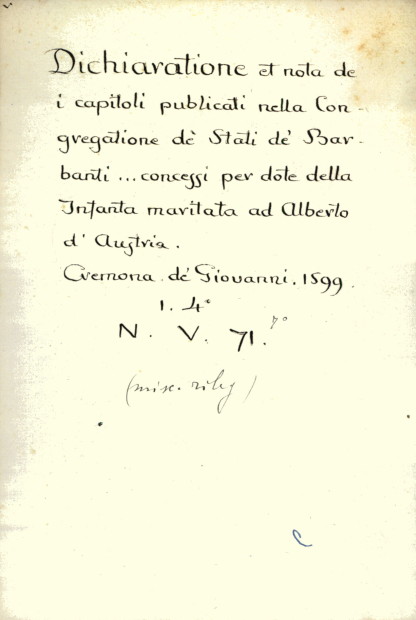 Dichiaratione et nota de
i capitoli publicati nella Con-
gregatione dè Stati de' Bar-
banti ... concessi per dote della
Infanta maritata ad Alberto
d' Austria.
Cremona. de' Giovanni. 1599.
1. 4°
N. V. 71. 7°
(misc. rileg)
C